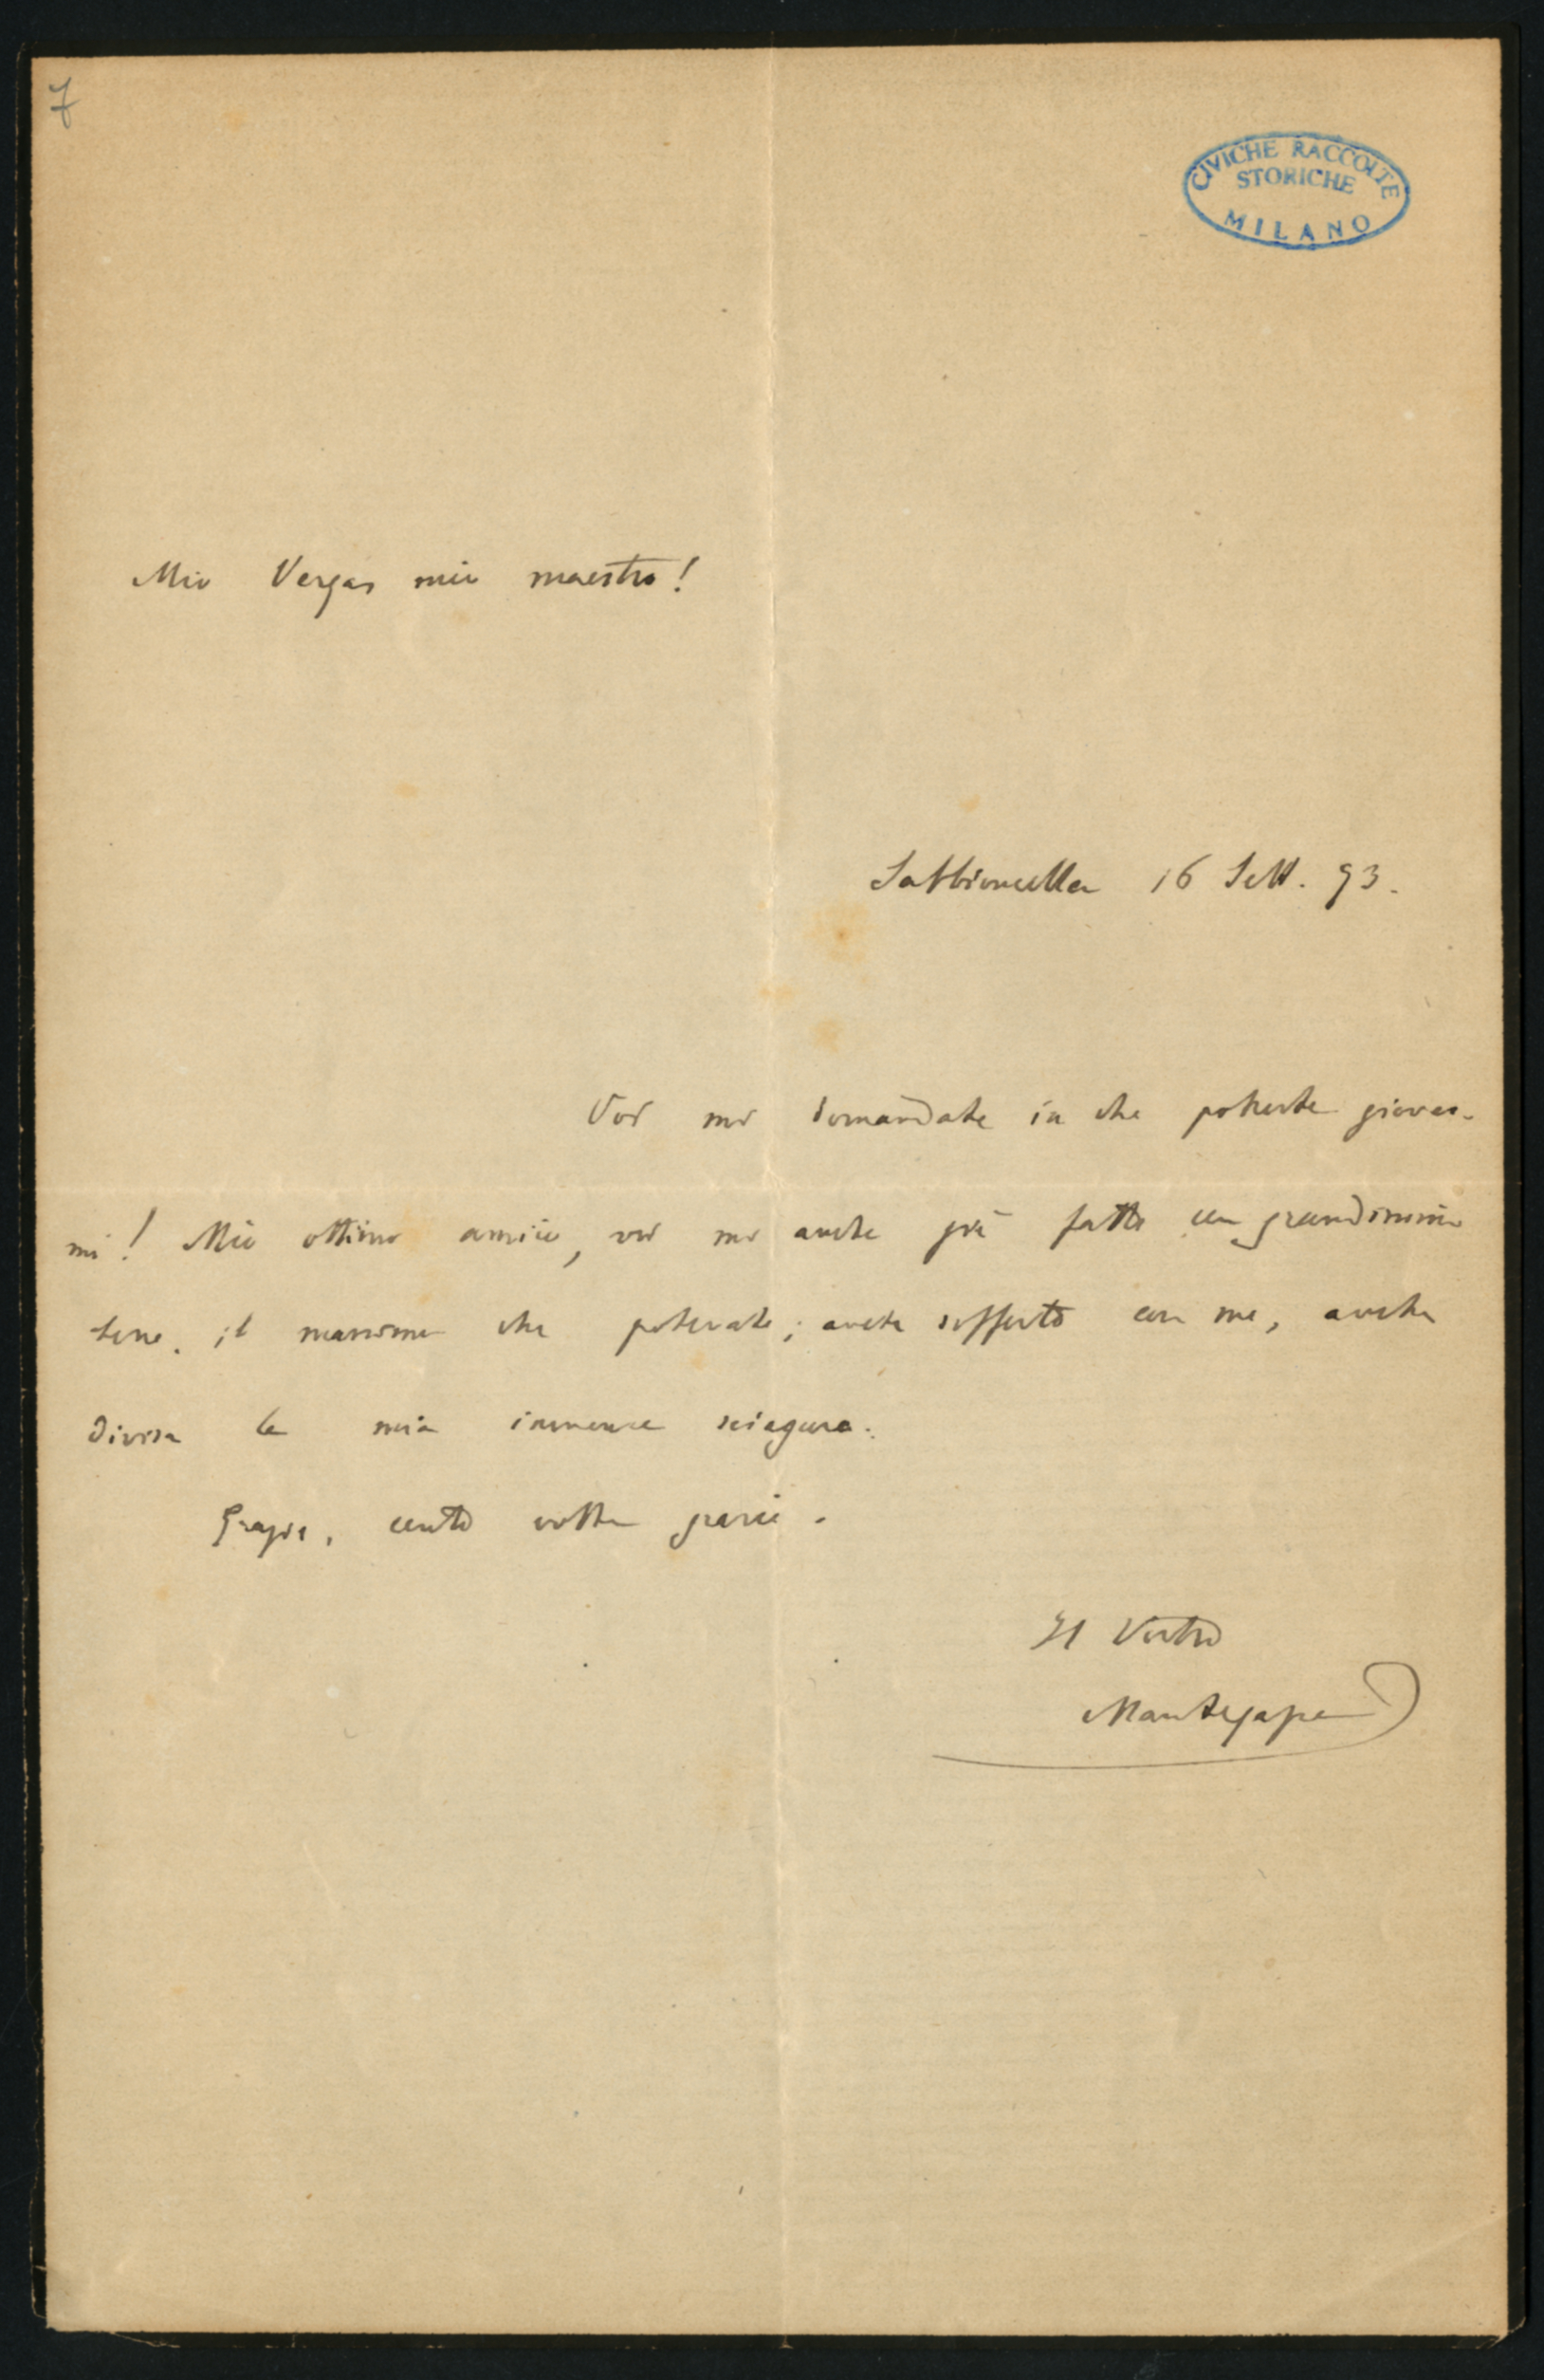 7
CIVICHE RACCOLTE
STORICHE
MILANO
Mio Vergas mio maestro!
Sabbioncella 16 Sett. 93.
Voi mi domandate in che potreste giovar-
mi! Mio ottimo amico, voi mi avete già fatto un grandissimo
bene, il massimo che potevate; avete sofferto con me, avete
divisa la mia immensa sciagura.
Grazie, cento volte grazie.
Il Vostro
Mantegazza